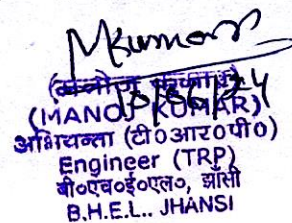 MKumar
(मनोज कुमार)
10/06/24
(MANOJ KUMAR)
अभियन्ता (टी०आर०पी०)
Engineer (TRP)
बी०एच०ई०एल०, झाँसी
B.H.E.L., JHANSI